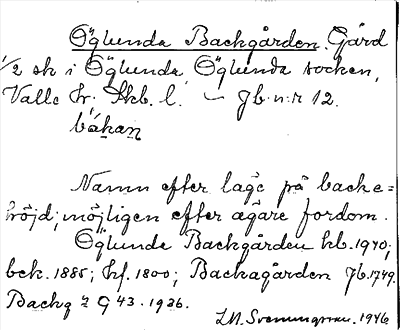 Öglunda Backgården. Gård
1/2 sk i Öglunda, Öglunda socken,
Valle hr. Skb. l. – Jb. n:r 12.
båkan
Namn efter läge på backe-
höjd; möjligen efter ägare fordom.
Öglunda Backgården kb. 1940;
bek. 1885; hf. 1800; Backagården Jb. 1749.
Backg z G 43. 1936.
1946